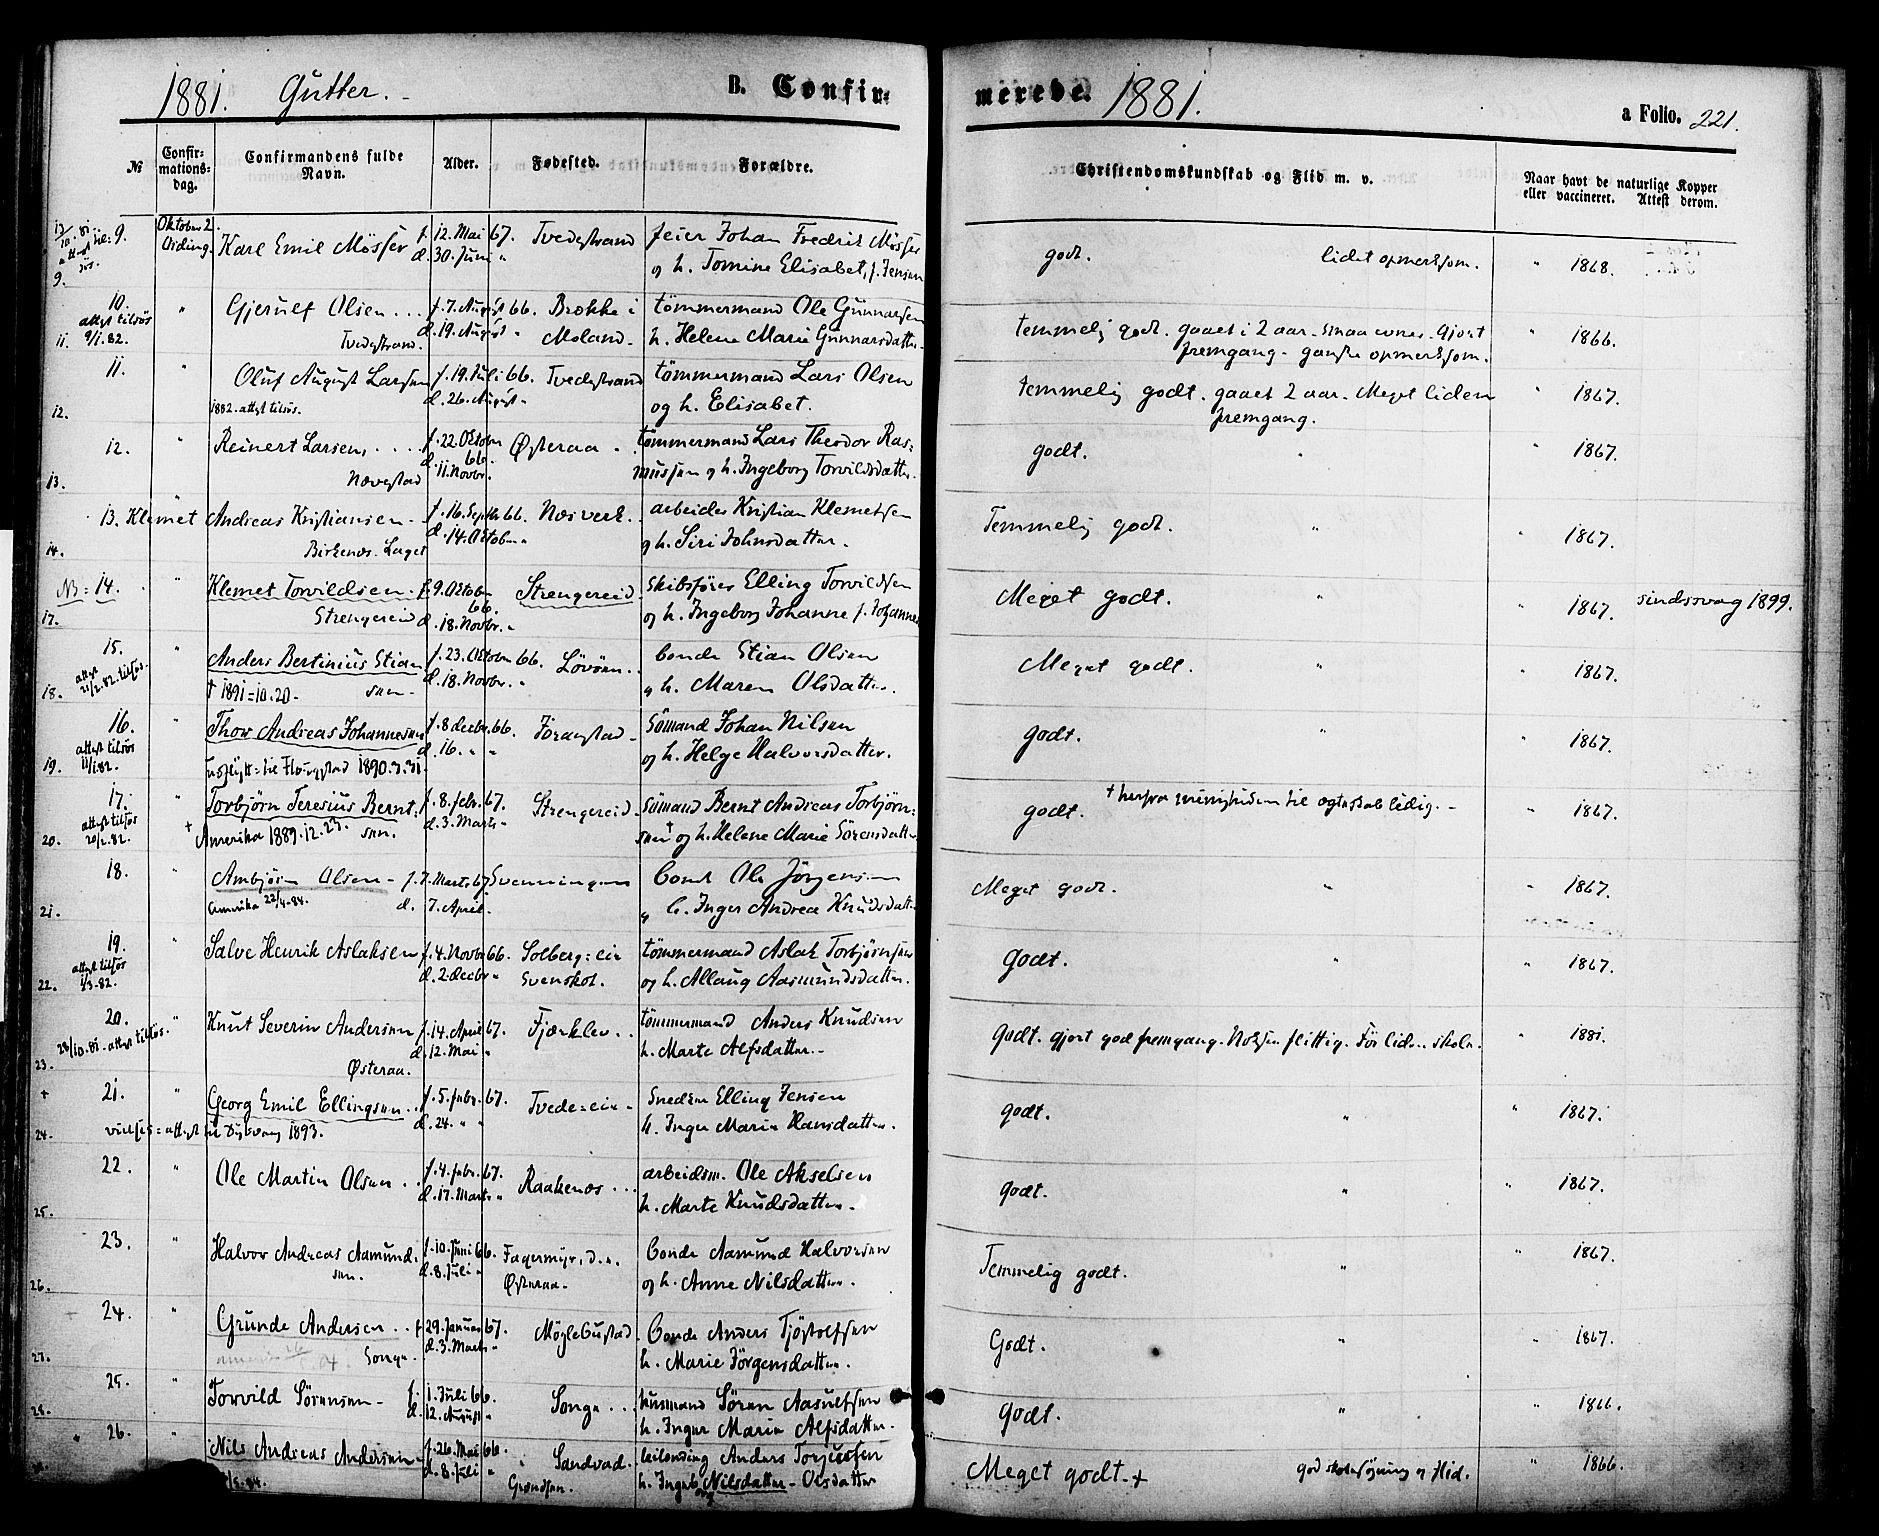 1881. Gutter. -
B. Confir=
No
Confir-
mations-
dag.
Confirmandens fulde
Navn.
Alder.
Fødested.
Forældre.
9. Oktober 2. Karl Emil Mösser f. 12. Mai 67. Tvedestrand feier Johan Fredrik Mösser
9. d. 30. Juni " og h. Tomine Elisabet, f. Jensen
10. " Gjerulf Olsen ... f. 7. August 66. Brække i tömmermand Ole Gunnarsen
11. attest tilsös 9/1.82. Tvedestrand. d. 19. August " Moland. h. Helene Marie Gunnarsdatter.
11. " Oluf August Larsen f. 19. Juli 66. Tvedestrand tömmermand Lars Olsen
12. 1882. attest tilsös. d. 26. August " og h. Elisabet.
12. " Reinert Larsen, ... f. 22. Oktober 66. Østeraa. tömmermand Lars Theodor Ras=
13. Nævestad d. 11. Novbr. mussen og h. Ingeborg Torvildsdatter.
13. Klemet Andreas Kristiansen. f. 16. Septbr 66. Næsverk. arbeider Kristian Klemetsen
14. Birkenæs. Laget d. 14. Oktober " og h. Siri Johnsdatter.
NB: 14. " Klemet Torvildsen. f. 9. Oktober 66. Strengereid. Skibsförer Elling Torvildsen
17. Strengereid d. 18. Novbr. " og h. Ingeborg Johanne f. Johannes
15. " Anders Bertinius Stian f. 23. Oktober 66. Lövöen. bonde Stian Olsen
18. attest 21/2.82. tilsös. † 1891=10.20. sen. d. 18. Novbr. " " h. Maren Olsdatter.
16. " Thor Andreas Johannesen f. 8. decbr. 66. Sömand Johan Nilsen
19. attest tilsös 11/1.82. 1890.3.31. d. 16. " " og h. Helge Halvorsdatter.
17. " Torbjørn Teresius Bernt= f. 8. febr. 67. Strengereid. Sömand Bernt Andreas Torbjørn=
20. attest tilsös 20/2.82. † Amerika 1889.12.23. sen. d. 3. Marts " sen † og h. Helene Marie Sörensdatter
18. " Ambjörn Olsen. f. 7. Marts 67. Svenningen bonde Ole Jörgensen
21. Amerika 22/4.84. d. 7. April. " h. Inger Andrea Knudsdatter
19. " Salve Henrik Aslaksen f. 4. Novbr 66. Solberg: eie tömmermand Aslak Torbjørnsen
22. attest tilsös 1/3.82. d. 2. decbr " Svenskot. og h. Allaug Aasmundsdatter.
20. " Knut Severin Andersen f. 14. April 67. Fjærklev.. tömmermand Anders Knudsen
23. 28/10.81. attest tilsös. Østeraa. d. 12. Mai " h. Marte Alfsdatter.
+ 21. " Georg Emil Ellingsen.. f. 5. febr. 67. Tvede=eie - Snedker Elling Jensen
24. attest til Dybvaag 1893. d. 24. " " h. Inger Maria Hansdatter.
22. " Ole Martin Olsen .. f. 4. febr. 67. Raakenæs ... arbeidsm. Ole Akselsen
25. d. 17. Marts " h. Marte Knudsdatter.
23. " Halvor Andreas Aamund= f. 10. Juni 66. Fagermyr, bonde Aamund Halvorsen
26. sen. d. 8. Juli " Østeraa. og h. Anne Nilsdatter.
24. " Grunde Andersen .. f. 29. Januar 67. Möglebustad. bonde Anders Tjöstolfsen
27. Songe. d. 3. Marts " h. Marie Jörgensdatter.
25. " Torvild Sörensen. f. 1. Juli 66. Songe ... husmand Sören Aasulfsen
28. d. 12. August " h. Inger Maria Alfsdatter.
26. " Nils Andreas Andersen f. 26. Mai 66. Sandvad. leilending Anders Torjussen
d. 8. Juli " Grændsen. h. Ingeborg Nilsdatter - Olsdatter
merede. 1881.
a Folio. 221.
Christendomskundskab og Flid m. v.
Naar havt de naturlige Kopper
eller vaccineret. Attest derom.
godt. lidet opmerksom. " 1868.
temmelig godt. gaaet i 2 aar. smaa evner. Gjort " 1866.
fremgang - ganske opmerksom.
temmelig godt. gaaet 2 aar. Meget liden " 1867.
fremgang.
godt. " 1867.
Temmelig godt. " " 1867.
Meget godt. " " 1867. sindssvag 1899.
Meget godt. " " 1867.
godt. " " 1867.
godt. " 1867.
Meget godt. " " 1867.
Godt. " " 1867.
Godt. gjort god fremgang. Noksaa flittig. Før liden skole. " 1881.
godt. " " 1867.
godt. " " 1867.
Temmelig godt. " " 1867.
Godt. " " 1867.
Godt. " " 1866.
Meget godt. + god skolesögning og flid. " 1866.